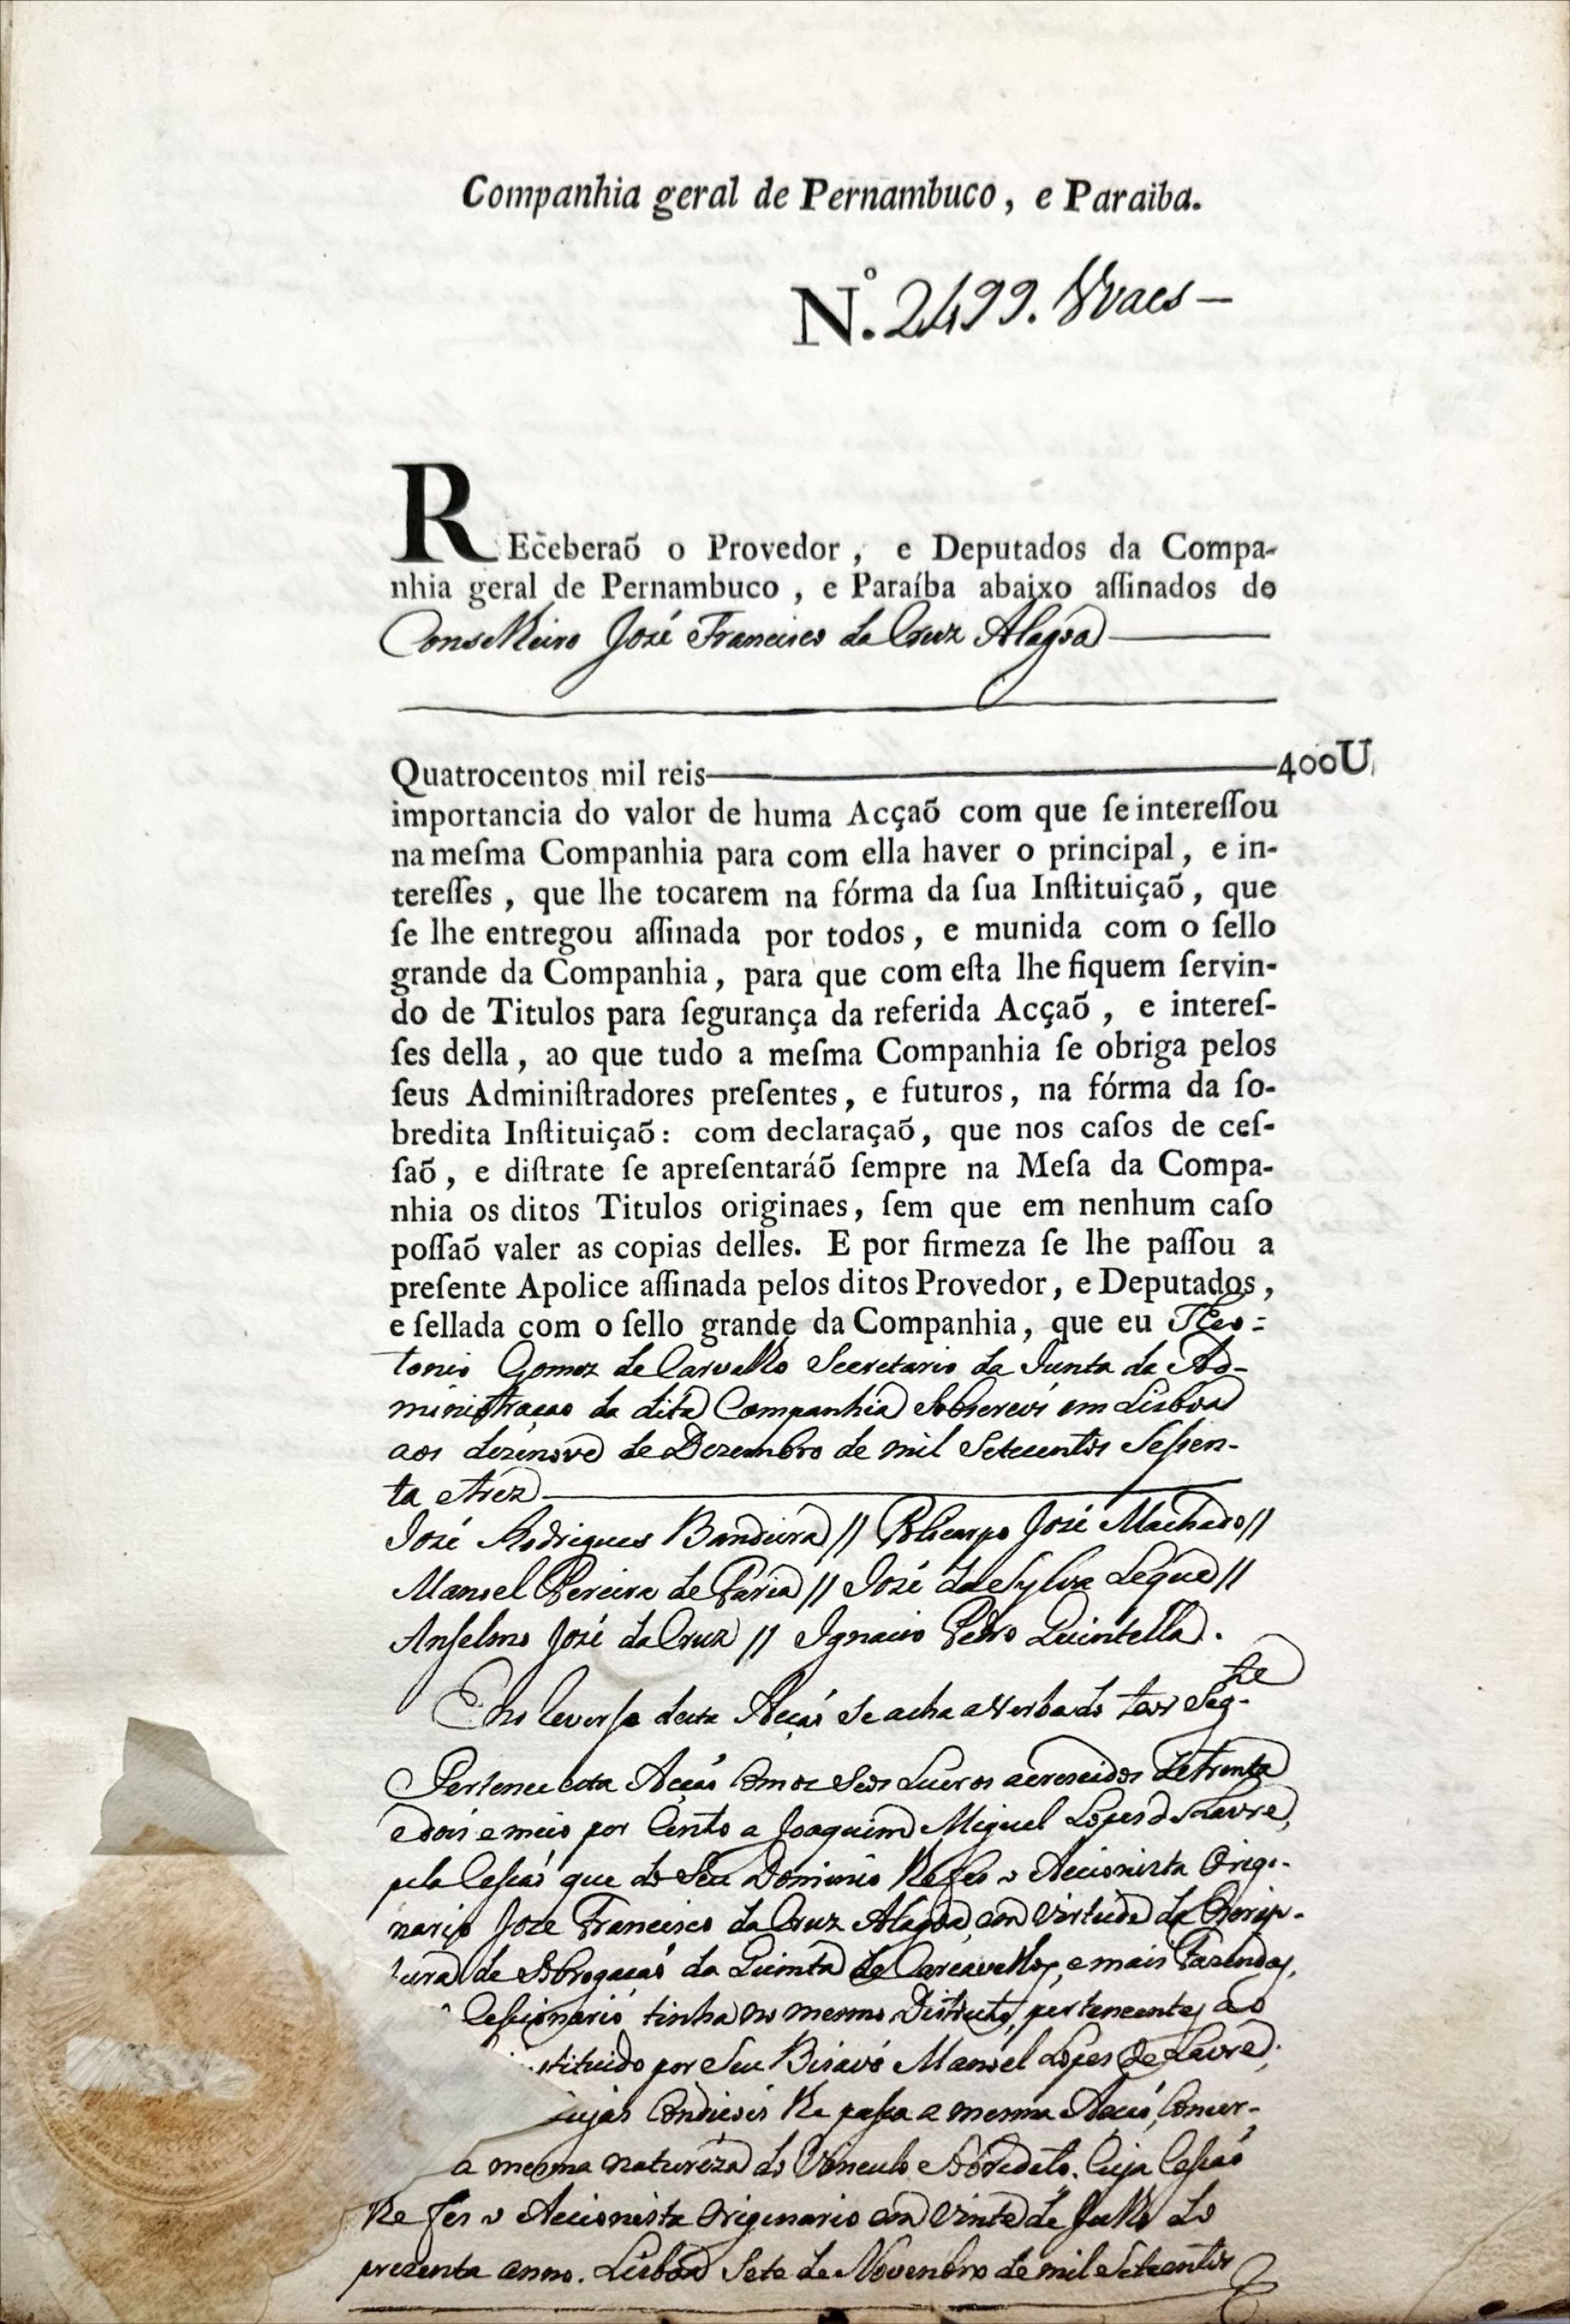 Companhia geral de Pernambuco, e Paraiba.
N.º 2499.
REceberaõ o Provedor, e Deputados da Compa-
nhia geral de Pernambuco, e Paraíba abaixo aſſinados do
Conselheiro José Francisco da Cruz Alagoa
Quatrocentos mil reis 400U
importancia do valor de huma Acçaõ com que ſe intereſſou
na meſma Companhia para com ella haver o principal, e in-
tereſſes, que lhe tocarem na fórma da ſua Inſtituiçaõ, que
ſe lhe entregou aſſinada por todos, e munida com o ſello
grande da Companhia, para que com eſta lhe fiquem ſervin-
do de Titulos para ſegurança da referida Acçaõ, e intereſ-
ſes della, ao que tudo a meſma Companhia ſe obriga pelos
ſeus Adminiſtradores preſentes, e futuros, na fórma da ſo-
bredita Inſtituiçaõ: com declaraçaõ, que nos caſos de ceſ-
ſaõ, e diſtrate ſe apreſentaráõ ſempre na Meſa da Compa-
nhia os ditos Titulos originaes, ſem que em nenhum caſo
poſſaõ valer as copias delles. E por firmeza ſe lhe paſſou a
preſente Apolice aſſinada pelos ditos Provedor, e Deputados,
e ſellada com o ſello grande da Companhia, que eu Theo=
tonio Gomez de Carvalho Secretario da Junta da Ad-
ministraçao da dita Companhia Sobscrevi em Lisboa
aos dezenove de Dezembro de mil Setecentos Seſsen-
ta e trez
José Rodrigues Bandeira // Policarpo José Machado //
Manoel Pereira de Faria // José da Sylva Leque //
Anselmo José da Cruz // Ignacio Pedro Quintella.
E no Reverso desta Acçaõ Se acha a Verba do teor Seg.te
Pertence esta Acçaõ Com os Seos Lucros acrescidos de trinta
e dois e meio por Cento a Joaquim Miguel Lopes de Lavre,
pela Ceſsaõ que do Seu Dominio lhe fes o Accionista Origi-
nario Joze Francisco da Cruz Alagoa, em virtude da Escrip-
tura de Sobrogaçaõ da Quinta de Carcavellos, e mais Fazendas,
Ceſsionario tinha no mesmo Districto, pertencentes ao
stituido por Seu Bisavó Manoel Lopes de Lavre;
Cujas Condiçois lhe paſsa a mesma Acçaõ, Conser-
a mesma natureza do Vinculo Sobredito. Cuja Ceſsaõ
lhe fes o Accionista Originario em vinte de Julho do
prezente anno. Lisboa Sete de Novembro de mil Setecentos